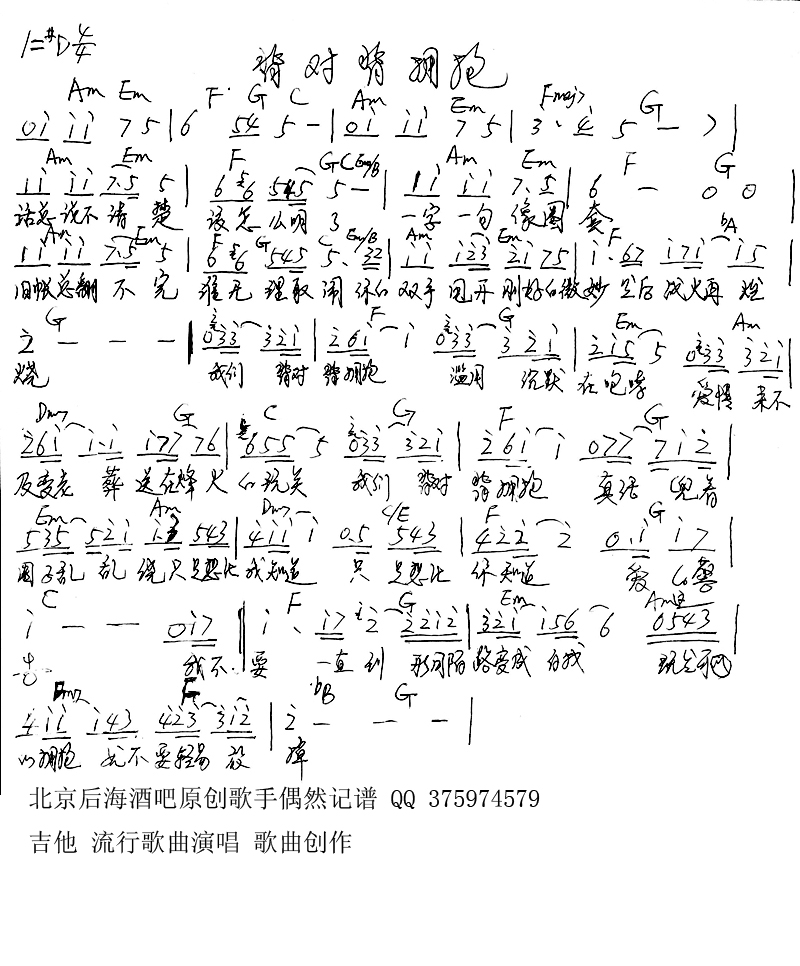 1=#D 4/4
背对背拥抱
Am Em F G C Am Em Fmaj7 G
0i ii 75 | 6 54 5 - | 0i ii 75 | 3· 4 5 - 7 |
Am Em F G C Em/B Am Em F G
ii ii 7·5 5 | 6 6 545 5 - | ii ii 7·5 | 6 - 0 0 |
话总说不清楚 该怎么明了 一字一句像圈套
Am Em F G C Em/B Am Em F bA
ii ii 7·5 5 | 6 6 545 5· 32 | ii i23 2i 75 | i· 67 i7i i5
旧帐总翻不完 难无理取闹 你的双手甩开刚好的微妙 然后战火再燃
G F G Em Am
2 - - - | 033 32i | 26i i 033 32i | 2i5 5 033 32i |
烧 我们背对背拥抱 滥用沉默在咆哮 爱情来不
Dm7 G C G F G
26i i·i i77 76 | 655 5 033 32i | 26i i 077 7i2 |
及变老 葬送在烽火的玩笑 我们背对背拥抱 真话兜着
Em Am Dm7 C/E F G
535 52i 543 | 4iii i 0.5 543 | 422 2 0.i i7 |
圈子乱乱绕 只是想让我知道 只是想让你知道 爱的警
C F G Em Am
i - - 0i7 | i· i7 2 22i2 | 32i i56 6 0543 |
告 我不要一直到 形同陌路变成自我 玩笑可
Dm7 G bB G
4ii i43 423 3i2 | 2 - - - |
以拥抱 就不要轻易放掉
北京后海酒吧原创歌手偶然记谱 QQ 375974579
吉他 流行歌曲演唱 歌曲创作